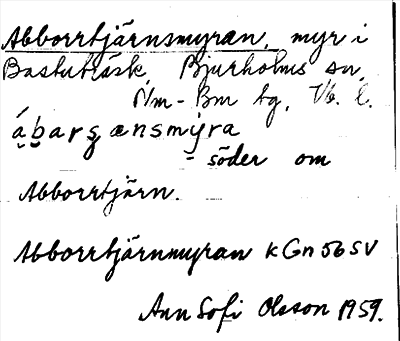 Abborrtjärnsmyran, myr i
Bastuträsk, Bjurholms sn,
N/m-Bm tg, Vb. l.
ábarʂænsmyra
- söder om
Abborrtjärn.
Abborrtjärnmyran kGn 56 SV
Ann Sofi Olsson 1959.